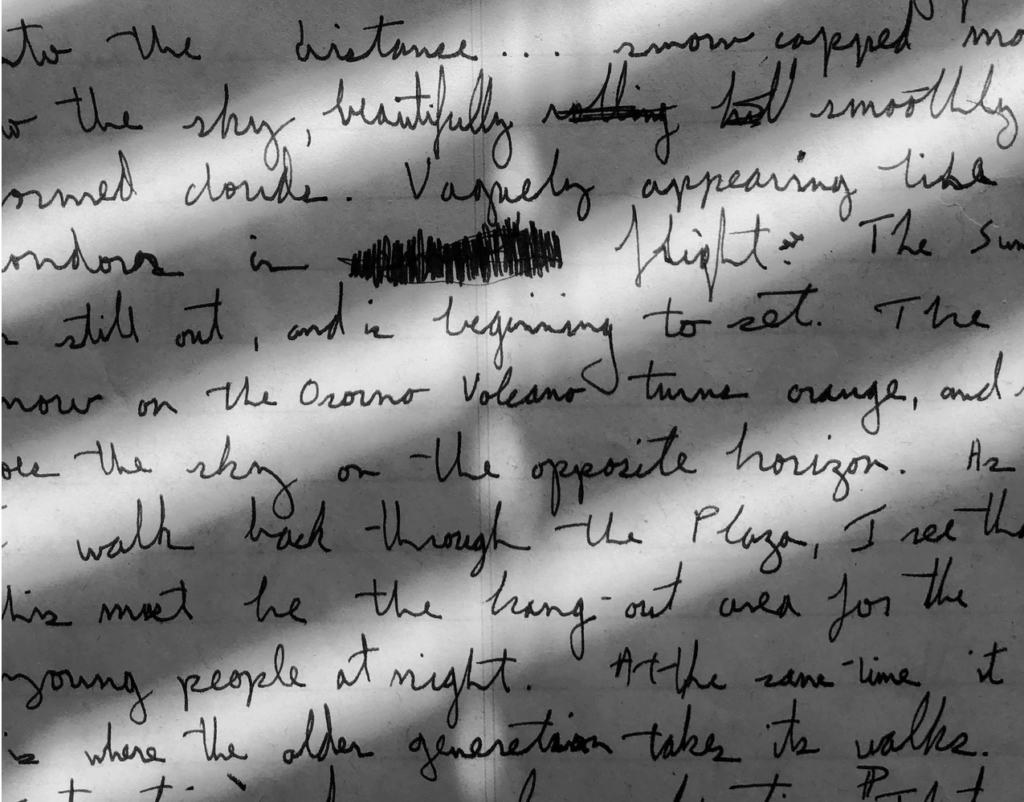 to the distance... snow capped mo
the sky, beautifully rolling but smoothly
ormed clouds. Vaguely appearing like
ondors in flight. The Sun
still out, and is beginning to set. The
now on the Osorno Volcano turns orange, and
oes the sky on the opposite horizon. As
I walk back through the Plaza, I see tha
his must be the hang-out area for the
young people at night. At the same time it
is where the older generation takes its walks.